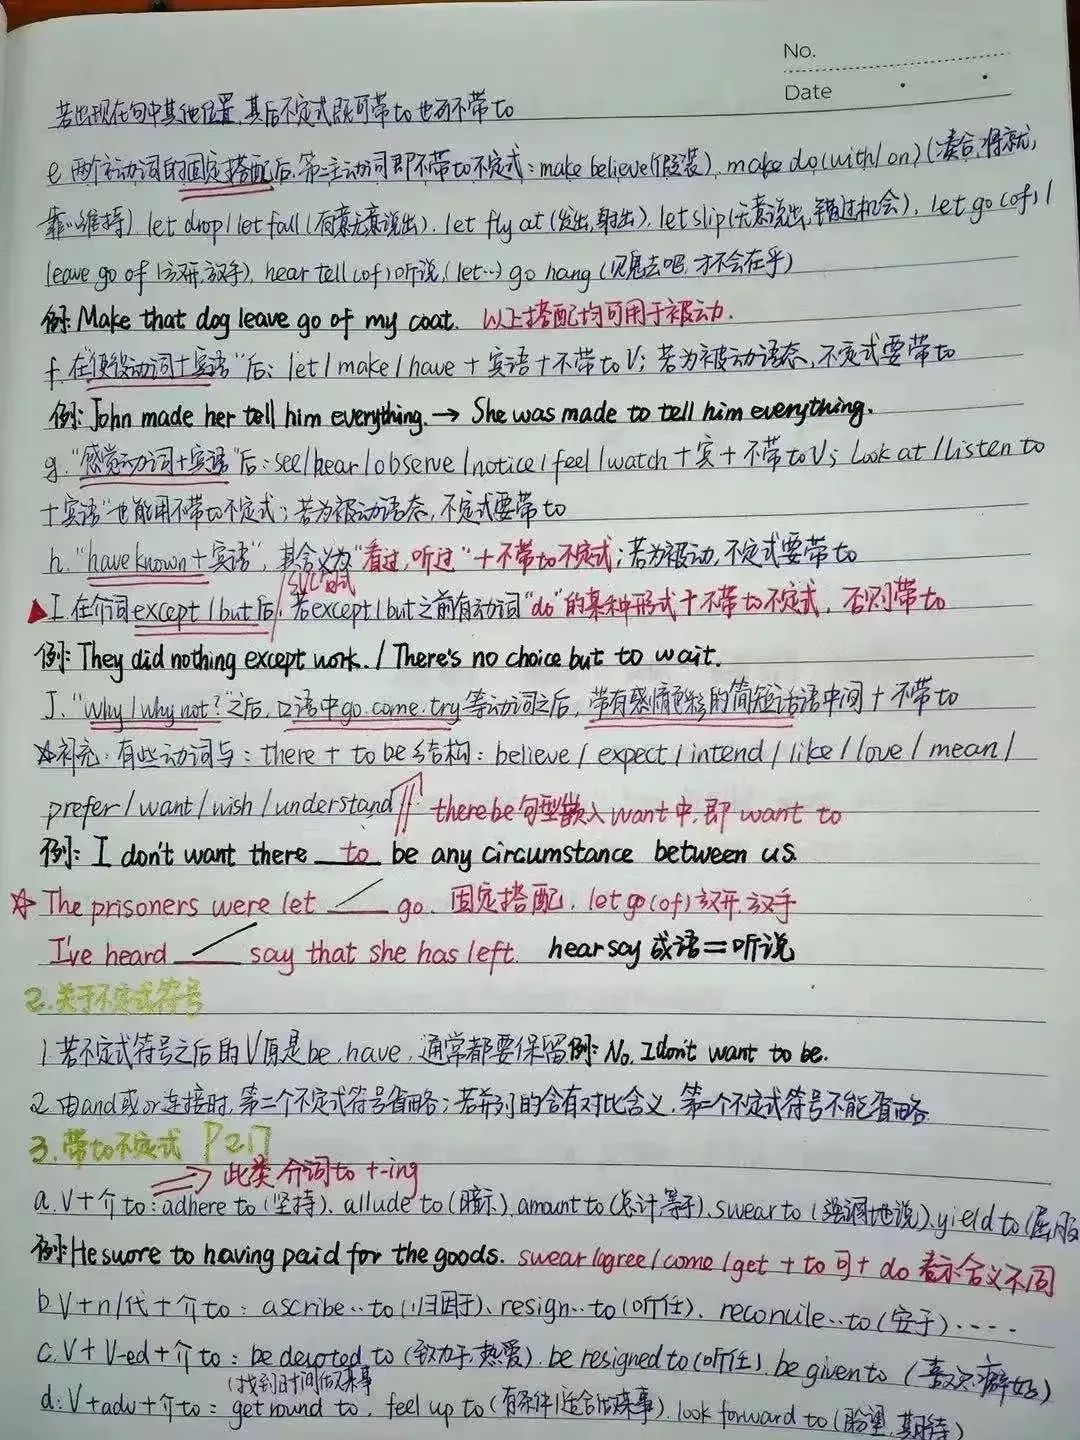 No.
Date
若出现在句中其他位置,其后不定式既可带to也可不带to
e.两个主动词的固定搭配后,第二主动词即不带to不定式:make believe(假装)、make do(with/on)(凑合,将就,
靠…维持) let drop/let fall(有意无意说出)、let fly at(发出,射出)、let slip(无意说出,错过机会)、let go(of)/
leave go of(放开,放手)、hear tell(of)听说,(let…) go hang(见鬼去吧,才不会在乎)
例:Make that dog leave go of my coat. 以上搭配均可用于被动.
f.在"使役动词+宾语"后:let/make/have+宾语+不带to V;若为被动语态,不定式要带to
例:John made her tell him everything.→ She was made to tell him everything.
g."感觉动词+宾语"后:see/hear/observe/notice/feel/watch+宾+不带to V;Look at/listen to
+宾语"也能用不带to不定式;若为被动语态,不定式要带to
h."have known+宾语",其含义为"看过,听过"+不带to不定式;若为被动,不定式要带to
I.在介词except/but后,若except/but之前有动词"do"的某种形式+不带to不定式,否则带to
例:They did nothing except work./There's no choice but to wait.
J."Why/why not?"之后,口语中go.come.try等动词之后,带有感情色彩的简短话语中间+不带to
☆补充:有些动词与:there+to be结构:believe/expect/intend/like/love/mean/
prefer/want/wish/understand there be句型嵌入want中,即want to
例:I don't want there to be any circumstance between us.
☆The prisoners were let / go. 固定搭配,let go(of)放开,放手
I've heard / say that she has left. hear say成语=听说
2.关于不定式符号
1.若不定式符号之后的V原是be、have,通常都要保留例:No, I don't want to be.
2.由and或or连接时,第二个不定式符号省略;若并列的含有对比含义,第二个不定式符号不能省略
3.带to不定式 P217
⇒此类介词to+-ing
a.V+介to:adhere to(坚持)、allude to(暗示)、amount to(总计,等于)、swear to(强调地说)、yield to(屈服
例:He swore to having paid for the goods. swear/agree/come/get+to可+do 表示含义不同
b.V+n/代+介to:ascribe…to(归因于)、resign…to(听任)、reconcile…to(安于)……
c.V+V-ed+介to:be devoted to(致力于,热爱)、be resigned to(听任)、be given to(喜欢,癖好)
(找到时间做某事
d.V+adv+介to:get round to、feel up to(有条件/适合做某事)、look forward to(盼望,期待)